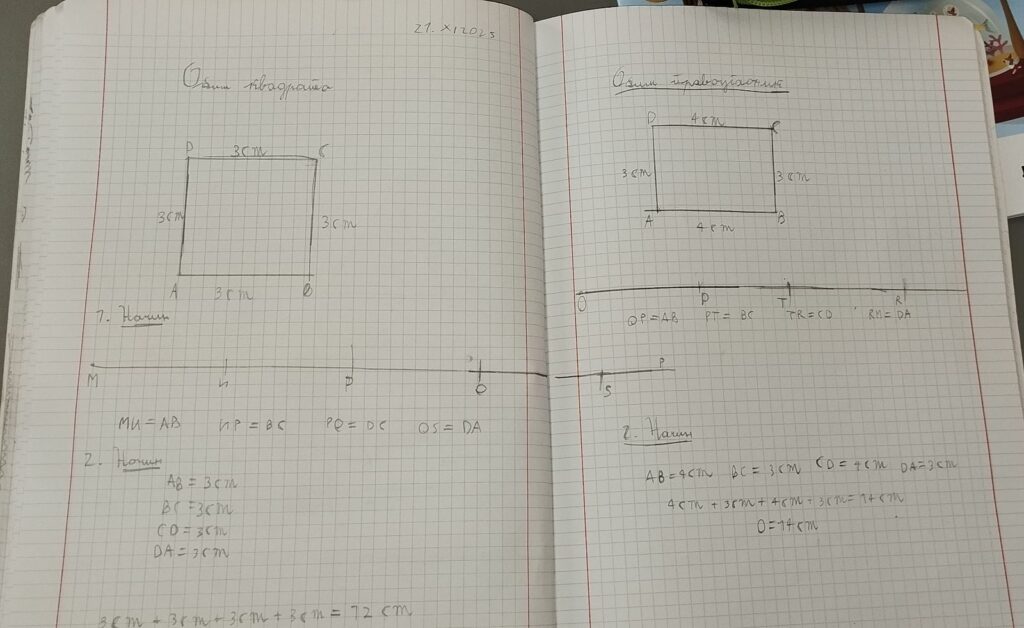 21. XI 2025
Обим квадрата
D 3cm C
3cm
3cm
A 3cm B
1. Начин
M N P Q S P
MN = AB NP = BC PQ = DC QS = DA
2. Начин
AB = 3cm
BC = 3cm
CD = 3cm
DA = 3cm
3cm + 3cm + 3cm + 3cm = 12 cm
Обим правоугаоник
D 4cm C
3cm 3cm
A B
4cm
O P T R
OP = AB PT = BC TR = CD RN = DA
2. Начин
AB = 4cm BC = 3cm CD = 4cm DA = 3cm
4cm + 3cm + 4cm + 3cm = 14cm
O = 14cm